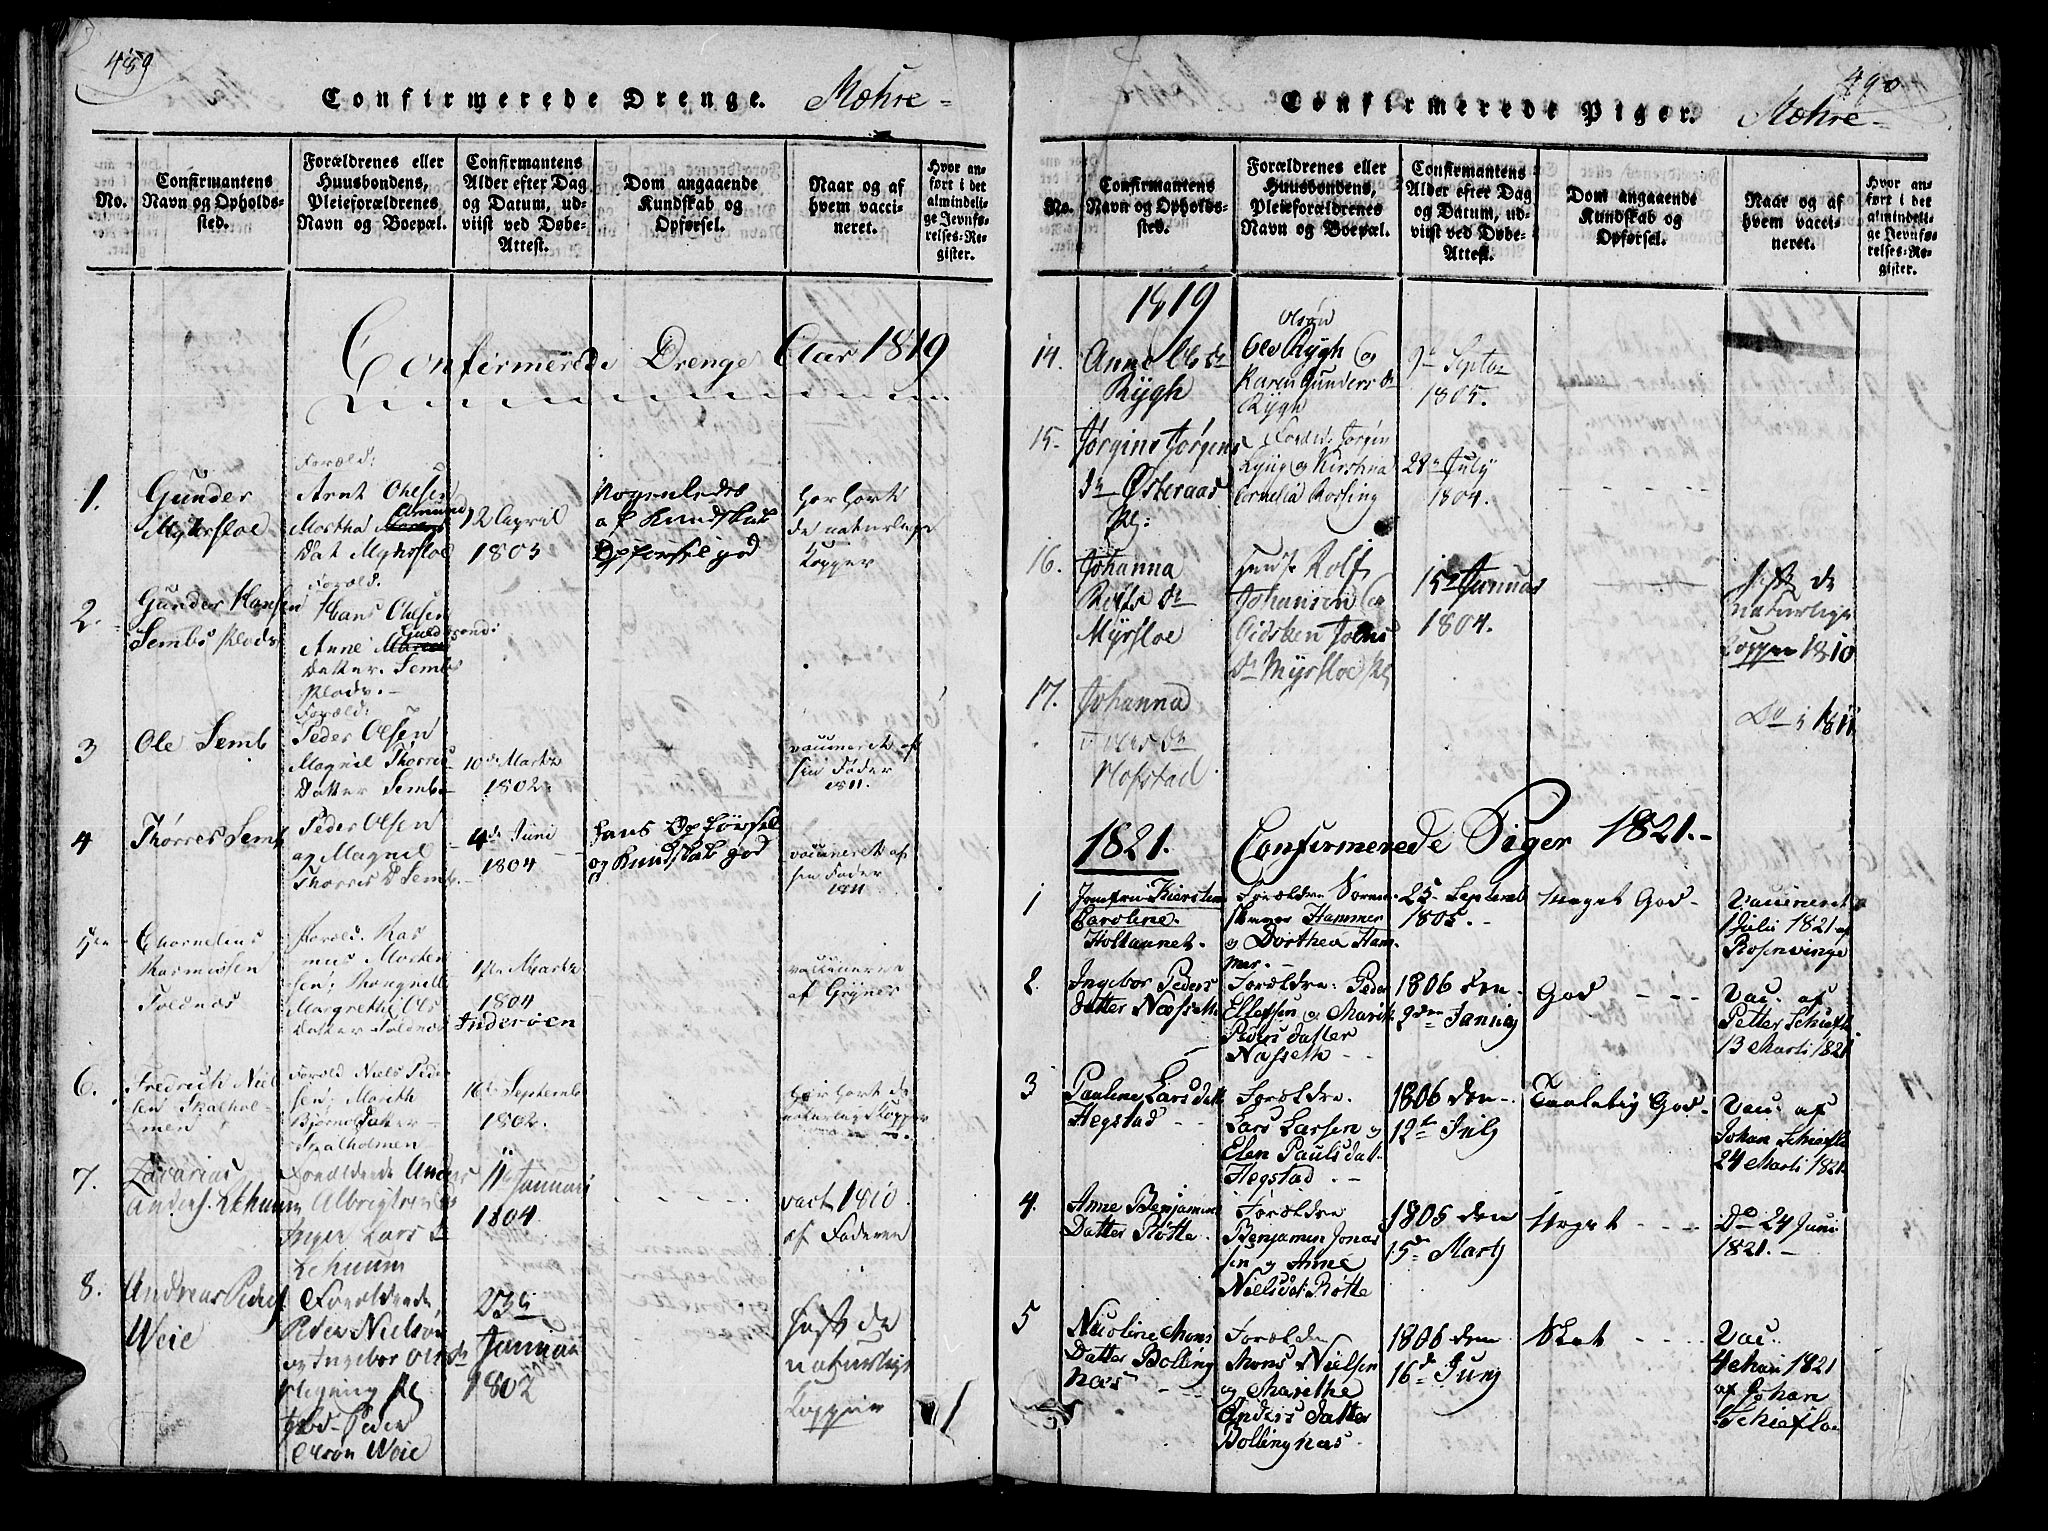 489
Confirmerede Drenge. Mæhre
No.
Confirmantens
Navn og Opholds-
sted.
Forældrenes eller
Huusbondens,
Pleieforældrenes
Navn og Boepæl.
Confirmantens
Alder efter Dag
og Datum, ud-
viist ved Døbe-
Attest.
Dom angaaende
Kundskab og
Opførsel.
Naar og af
hvem vacci-
neret.
Hvor an-
ført i det
almindeli-
ge Jevnfø-
relses-Re-
gister.
Confirmerede Drenge Aar 1819
1.
Gunder
Myhrsloe
Foræld:
Arnt Olesen
Martha
Dat Myhrsloe
12 April
1803
Nogenledes
af Kundskab
Opførsel god
har havt
de naturlige
Kopper
2.
Gunder Hansen
Sembs Plads
Foræld.
Hans Olesen
Anne
Datter. Sembs
Plads.
3
Ole Semb
Foræld:
Peder Olsen
Magnil Thorris
Datter Semb
10de Martz
1802.
vaccineret af
sin Fader
1811.
4
Thorres Semb
Peder Olsen
og Magnil
Thorris D Semb.
4de Juni
1804
Hans Opførsel
og Kundskab god
vaccineret af
sin Fader
1811
Chornelius
Rasmussen
Toldnæs
Foræld. Ras
mus Morten
sen;
Margrethe Ols
Datter Toldnæs
Martz
1804
Inderøen
af Gryner
6.
Fredrich Niel
sen Skalhol-
men
Foræld Niels Pede
sen; Marith
Bjørns Datter
Skalholmen
16de Septemb
1802.
har havt de
naturlig Kopper
7.
Zacarias
Anders.
Forældrene Anders
Albrigtsen
Inger Lars D
11 Januari
1804
vact 1810
af Faderen
8.
Andreas Peders
Weie
Forældrene
Peder Nielsøn
og Ingebor Ols dr
Peder
Olson Weie
23de
Januari
1802
Haft de
naturlige
Kopper
490
Confirmerede Piger. Mæhre
No.
Confirmantens
Navn og Opholds-
sted.
Forældrenes eller
Huusbondens,
Pleieforældrenes
Navn og Boepæl.
Confirmantens
Alder efter Dag
og Datum, ud-
viist ved Døbe-
Attest.
Dom angaaende
Kundskab og
Opførsel.
Naar og af
hvem vacci-
neret.
Hvor an-
ført i det
almindeli-
ge Jevnfø-
relses-Re-
gister.
1819
14.
Anne Ols dr
Rygh
Olsøn
Ole Rygh og
Karen Gunders dr
Rygh
9de Septbr
1805.
15.
Jørgine Jørgens
dr Østeraas
Pl:
Jørgen
Lyng og Kirstina
Cornelia Rossing
28de July
1804.
16.
Johanna
Rolfs dr
Myrsloe
Rolf
Johansen og
Gidsken Johns
Dr Myrsloe Pl
15de Januar
1804.
haft de
naturlige
Kopper 1810
17.
Johanna
Hofstad
Do i 1811
1821. Confirmerede Piger 1821.-
1
Jomfru Kiersten
Caroline
Holtaanet.
Forældre Sorren
Hammer
og Dorthea Ham-
mer.
25 Septemb
1805.
Meget God
Vaccineret
1 Juli 1821 af
Rosenvinge
2.
Ingebor Peders
Datter Næsseth
Forældre: Peder
Ellefsen og Marith
Peders datter
Næsseth
1806 den
2den Januarj
God
Vac: af
Petter Schiefte
13 Marti 1821
3
Pauline Lars datt
Hegstad
Forældre.
Lars Larsen og
Elen Paulsdat.
Hegstad.
1806 den
12te July
Taalelig God
Vac: af
Johan Schiefte
24 Marti 1821
4.
Anne Benjamins
Datter Røtte.
Forældre
Benjamin Jonas
sen og Anne
Nielsdat. Røtte
1805 den
15de Martj
Meget
Do 24 Juni
1821.
5
Nicoline Mons
Datter Bolling
næs
Forældre
Mons Nielsen
og Marithe
Anders Datter
Bollingnæs.
1806 den
16de Junj
Slet
Vac:
4 Mai 1821
af Johan
Schiefloe